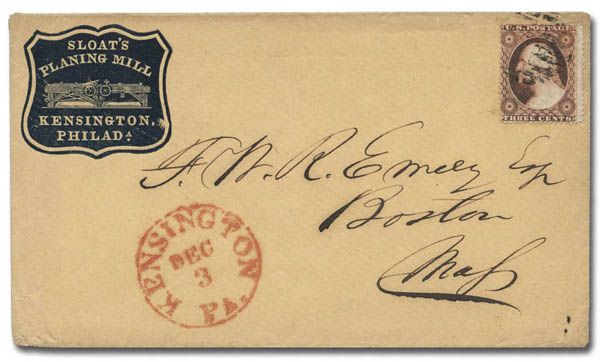 SLOAT'S
PLANING MILL
KENSINGTON,
PHILADA.
U.S. POSTAGE
THREE CENTS
F. W. R. Emery Esq
Boston
Mass
KENSINGTON
DEC
3
PA.